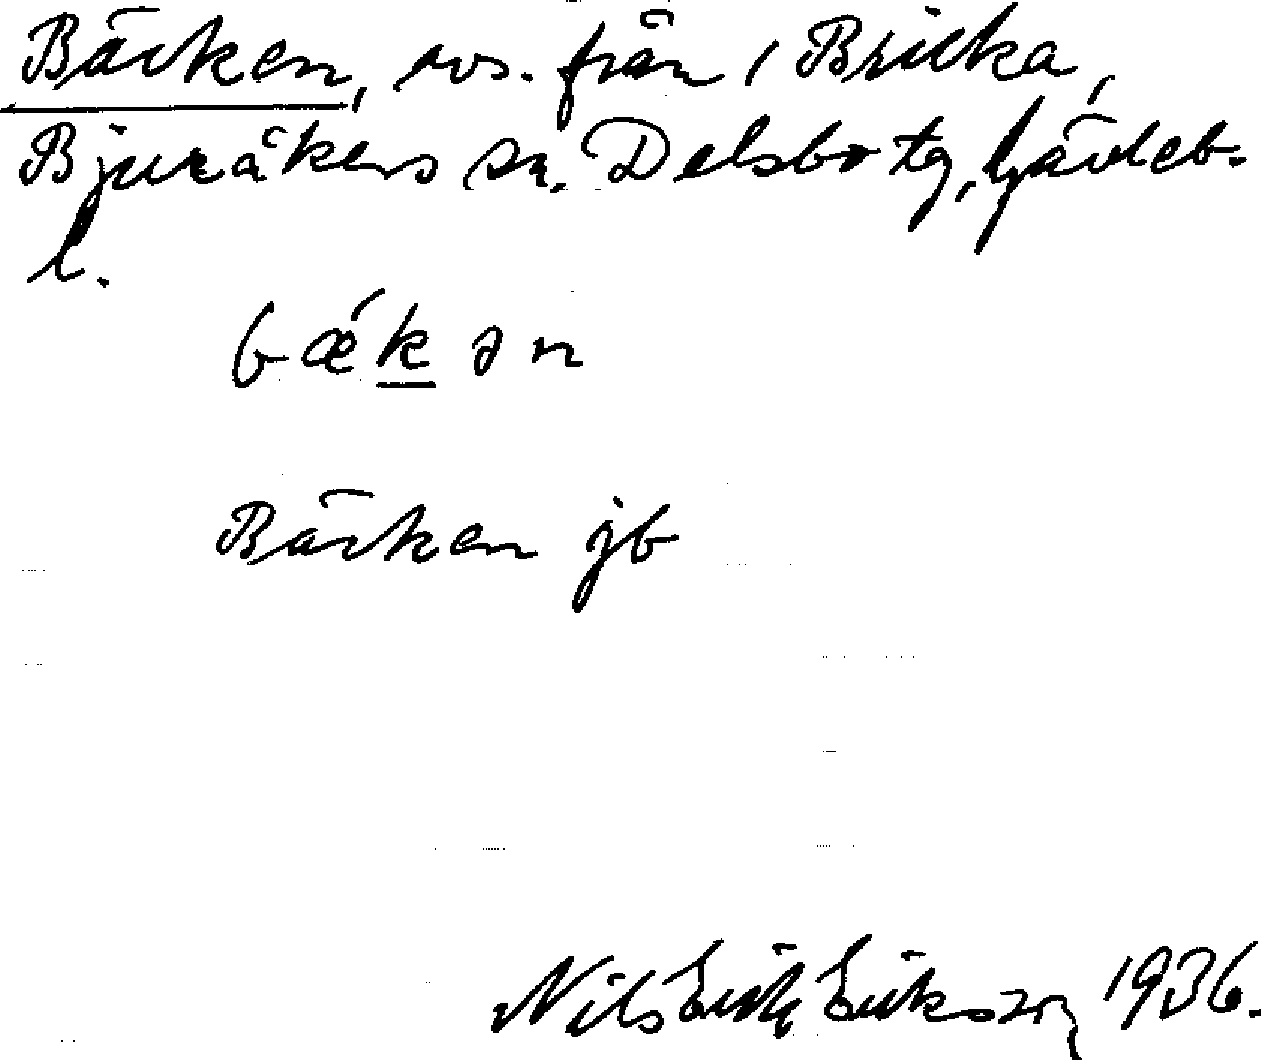 Bäcken, avs. från 1 Bricka,
Bjuråkers sn, Delsbo tg, Gävleb.
l.
bǽkən
Bäcken jb
Nils Erik Eriksson 1936.